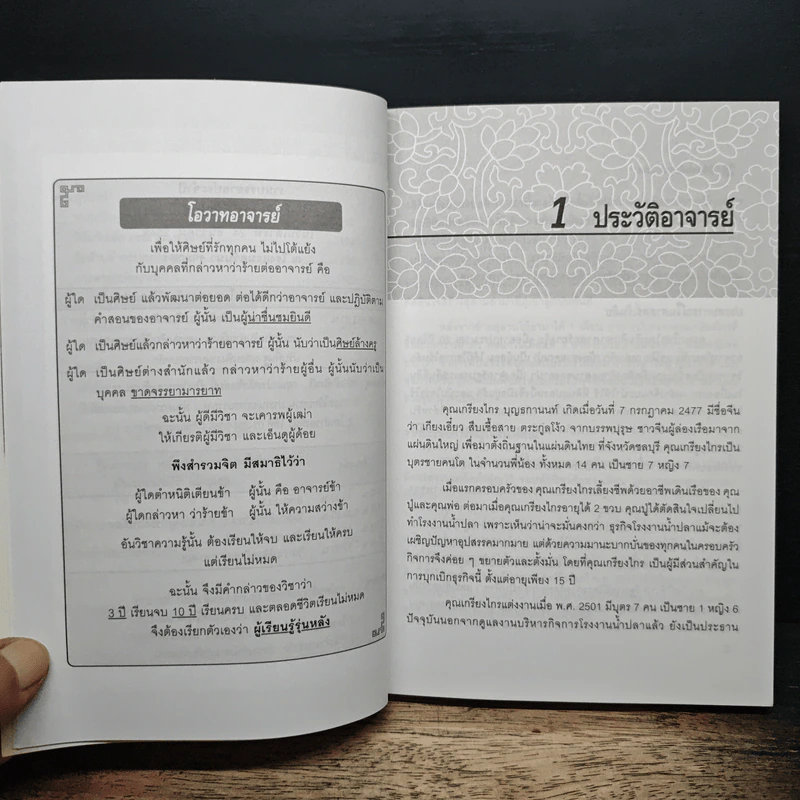 โอวาทอาจารย์
เพื่อให้ศิษย์ที่รักทุกคน ไม่ไปโต้แย้ง
กับบุคคลที่กล่าวหาว่าร้ายต่ออาจารย์ คือ
ผู้ใด เป็นศิษย์ แล้วพัฒนาต่อยอด ต่อได้ดีกว่าอาจารย์ และปฏิบัติตาม
คำสอนของอาจารย์ ผู้นั้น เป็นผู้น่าชื่นชมยินดี
ผู้ใด เป็นศิษย์แล้วกล่าวหาว่าร้ายอาจารย์ ผู้นั้น นับว่าเป็นศิษย์ล้างครู
ผู้ใด เป็นศิษย์ต่างสำนักแล้ว กล่าวหาว่าร้ายผู้อื่น ผู้นั้นนับว่าเป็น
บุคคล ขาดจรรยามารยาท
ฉะนั้น ผู้ดีมีวิชา จะเคารพผู้เฒ่า
ให้เกียรติผู้มีวิชา และเอ็นดูผู้ด้อย
พึงสำรวมจิต มีสมาธิไว้ว่า
ผู้ใดตำหนิติเตียนข้า ผู้นั้น คือ อาจารย์ข้า
ผู้ใดกล่าวหา ว่าร้ายข้า ผู้นั้น ให้ความสว่างข้า
อันวิชาความรู้นั้น ต้องเรียนให้จบ และเรียนให้ครบ
แต่เรียนไม่หมด
ฉะนั้น จึงมีคำกล่าวของวิชาว่า
3 ปี เรียนจบ 10 ปี เรียนครบ และตลอดชีวิตเรียนไม่หมด
จึงต้องเรียกตัวเองว่า ผู้เรียนรู้รุ่นหลัง
1 ประวัติอาจารย์
คุณเกรียงไกร บุญธกานนท์ เกิดเมื่อวันที่ 7 กรกฎาคม 2477 มีชื่อจีน
ว่า เกียงเอี้ยว สืบเชื้อสาย ตระกูลโง้ว จากบรรพบุรุษ ชาวจีนผู้ล่องเรือมาจาก
แผ่นดินใหญ่ เพื่อมาตั้งถิ่นฐานในแผ่นดินไทย ที่จังหวัดชลบุรี คุณเกรียงไกรเป็น
บุตรชายคนโต ในจำนวนพี่น้อง ทั้งหมด 14 คน เป็นชาย 7 หญิง 7
เมื่อแรกครอบครัวของ คุณเกรียงไกรเลี้ยงชีพด้วยอาชีพเดินเรือของ คุณ
ปู่และคุณพ่อ ต่อมาเมื่อคุณเกรียงไกรอายุได้ 2 ขวบ คุณปู่ได้ตัดสินใจเปลี่ยนไป
ทำโรงงานน้ำปลา เพราะเห็นว่าน่าจะมั่นคงกว่า ธุรกิจโรงงานน้ำปลาแม้จะต้อง
เผชิญปัญหาอุปสรรคมากมาย แต่ด้วยความมานะบากบั่นของทุกคนในครอบครัว
กิจการจึงค่อย ๆ ขยายตัวและตั้งมั่น โดยที่คุณเกรียงไกร เป็นผู้มีส่วนสำคัญใน
การบุกเบิกธุรกิจนี้ ตั้งแต่อายุเพียง 15 ปี
คุณเกรียงไกรแต่งงานเมื่อ พ.ศ. 2501 มีบุตร 7 คน เป็นชาย 1 หญิง 6
ปัจจุบันนอกจากดูแลงานบริหารกิจการโรงงานน้ำปลาแล้ว ยังเป็นประธาน